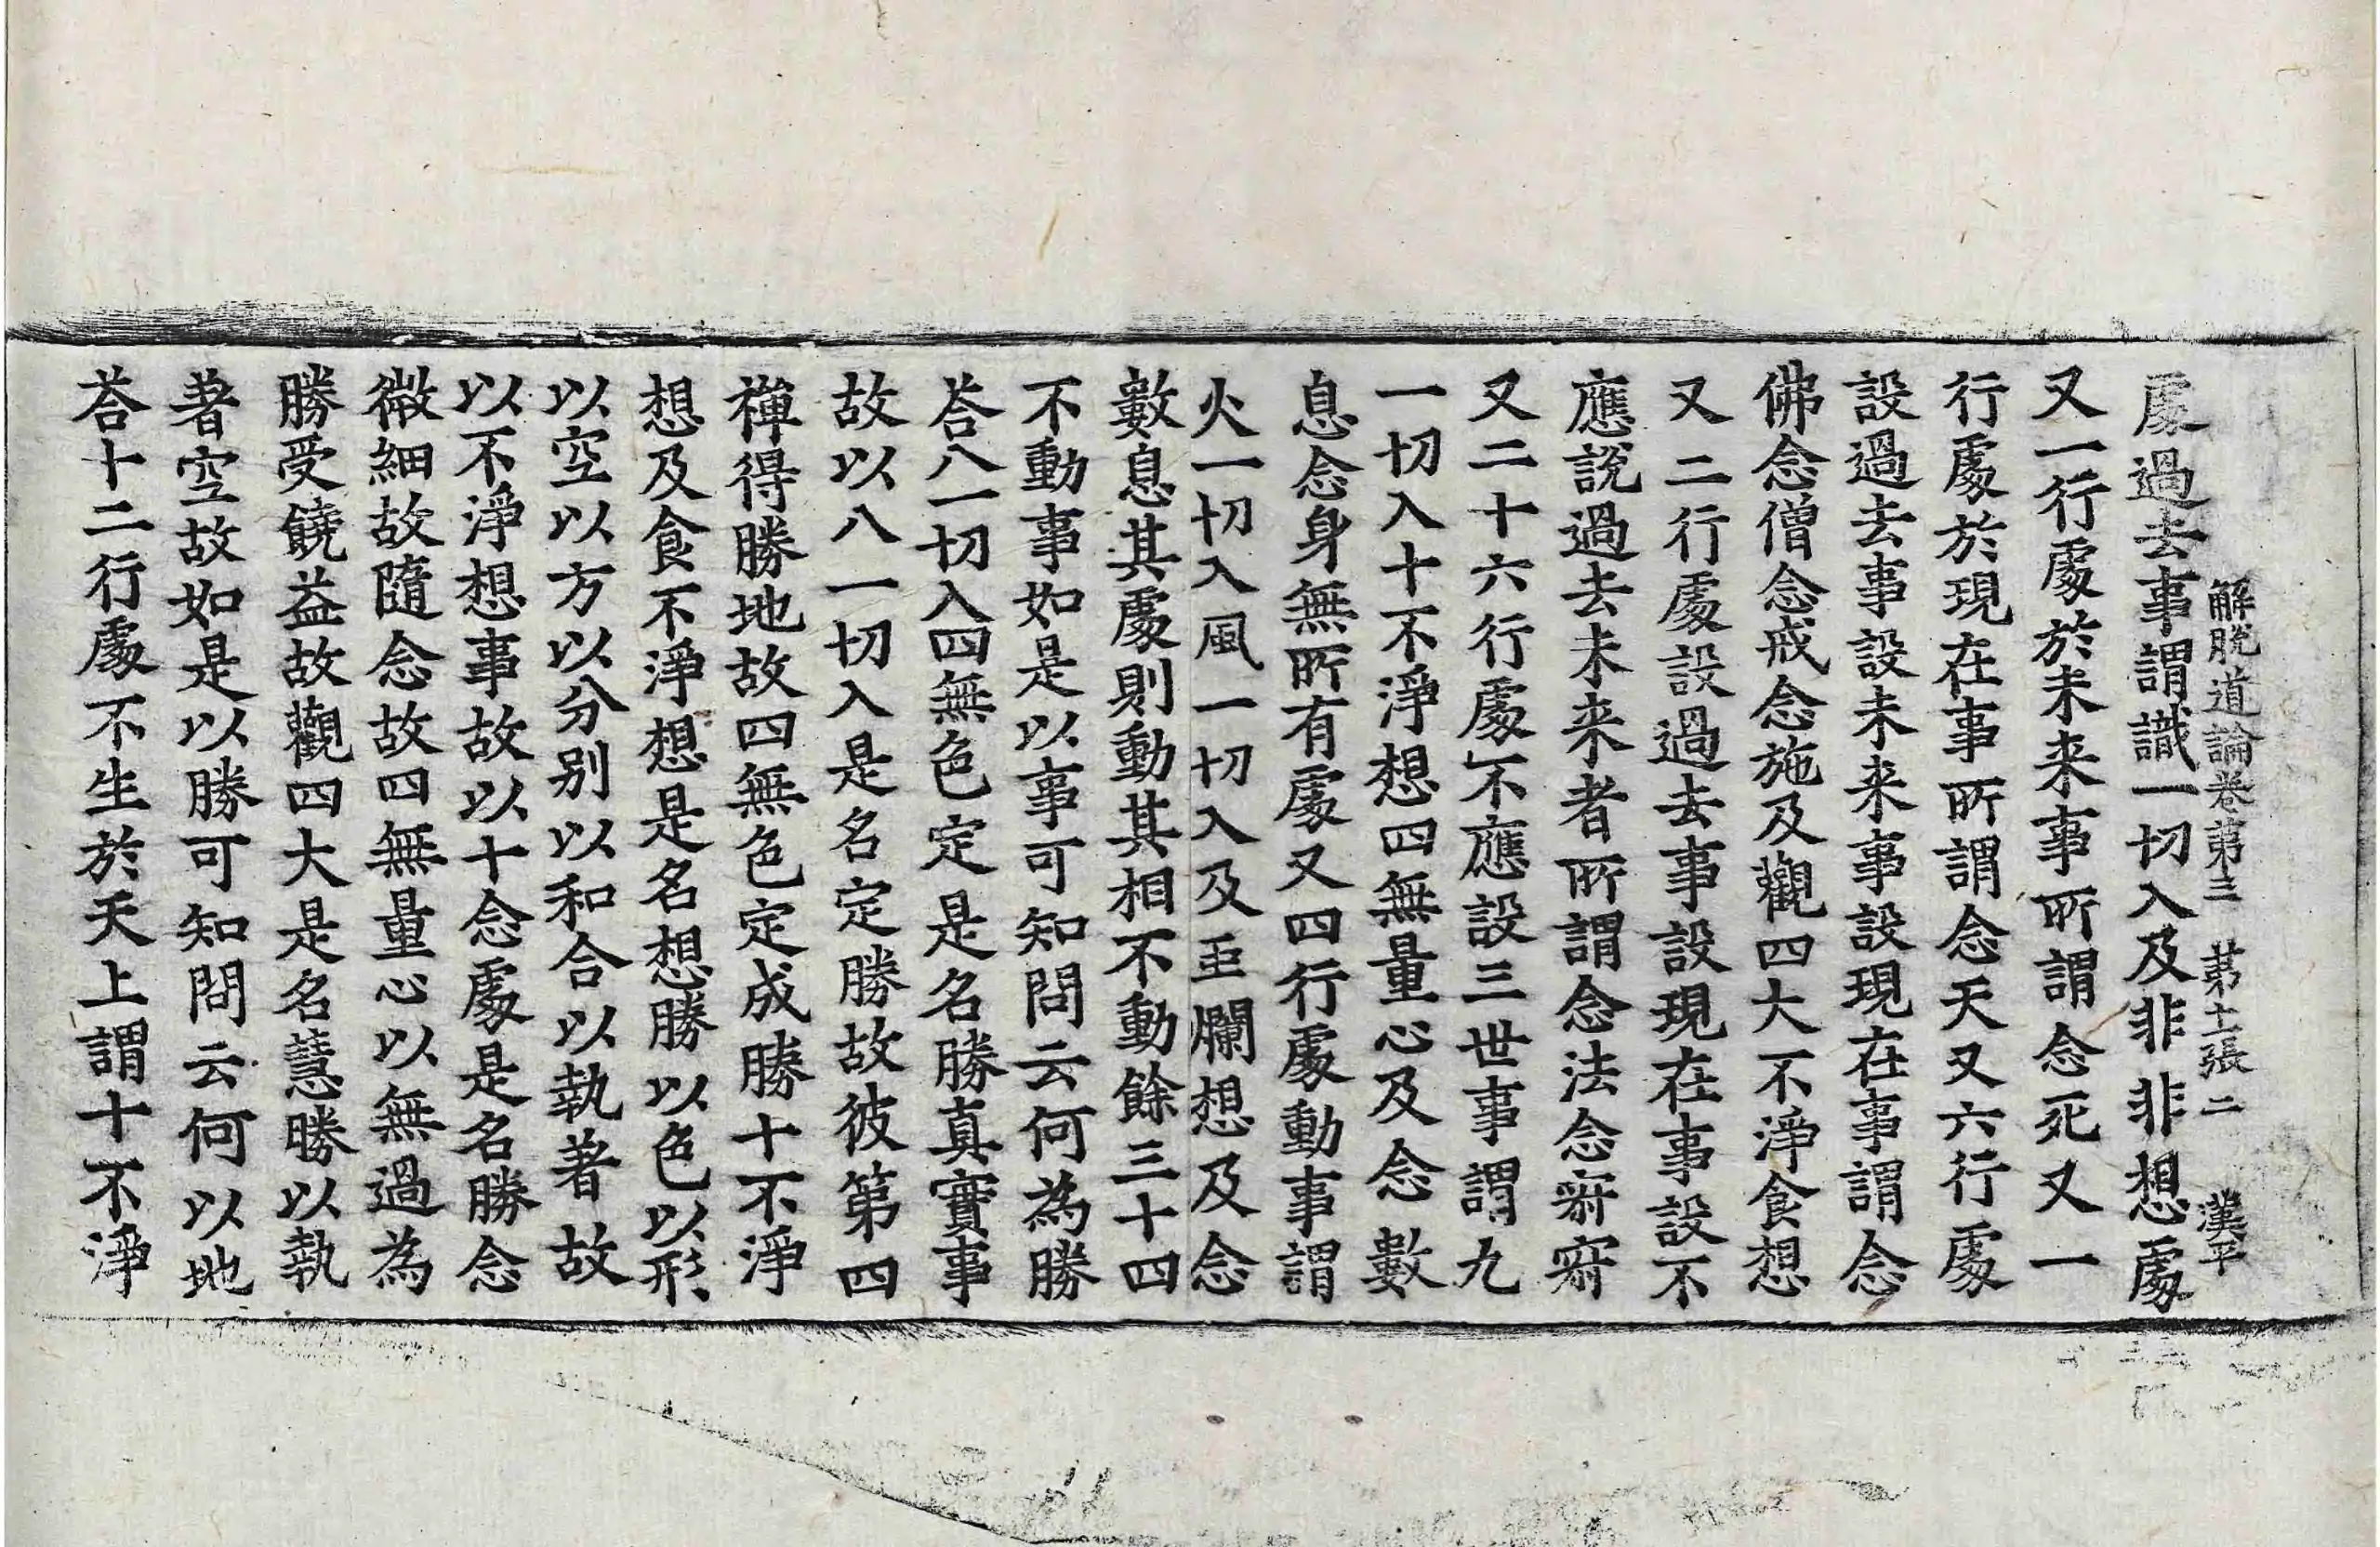 解脫道論卷第三 第十二張 漢平
處過去事謂識一切入及非非想處
又一行處於未来事所謂念死又一
行處於現在事所謂念天又六行處
設過去事設未来事設現在事謂念
佛念僧念戒念施及觀四大不淨食想
又二行處設過去事設現在事設不
應說過去未来者所謂念法念寂寂
又二十六行處不應設三世事謂九
一切入十不淨想四無量心及念數
息念身無所有處又四行處動事謂
火一切入風一切入及虫爛想及念
數息其處則動其相不動餘三十四
不動事如是以事可知問云何為勝
荅八一切入四無色定是名勝真實事
故以八一切入是名定勝故彼第四
禪得勝地故四無色定成勝十不淨
想及食不淨想是名想勝以色以形
以空以方以分别以和合以執著故
以不淨想事故以十念處是名勝念
微細故隨念故四無量心以無過為
勝受饒益故觀四大是名慧勝以執
著空故如是以勝可知問云何以地
荅十二行處不生於天上謂十不淨